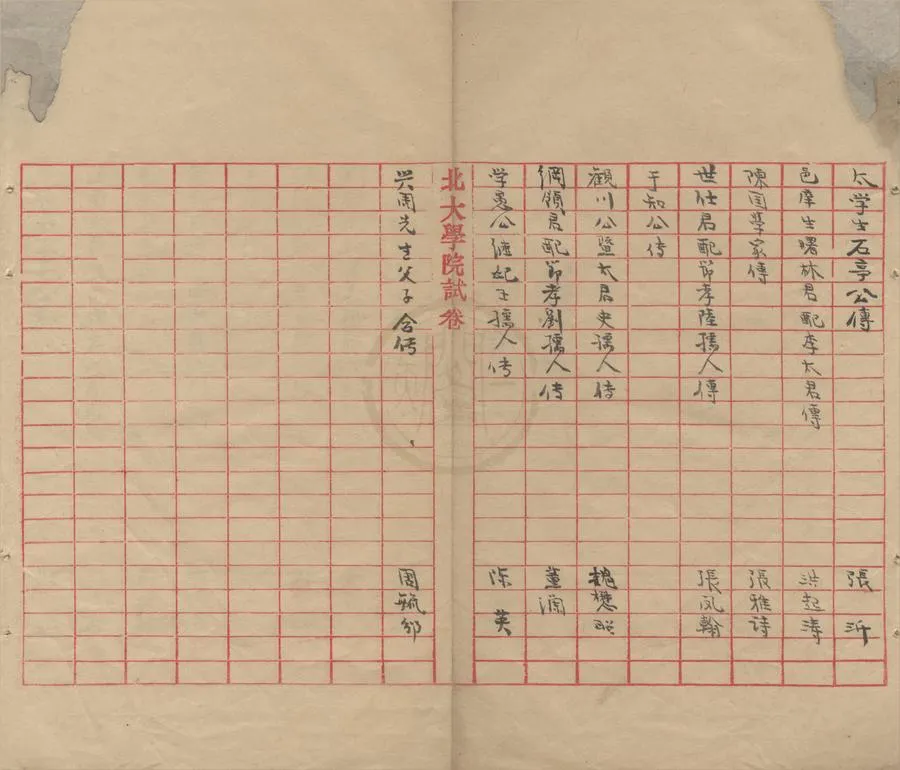 太学生石亭公傳 張沂
邑庠生曙林君配李太君傳 洪起濤
陳国學家傳 張雅詩
世仕君配節孝陸孺人傳 張凤翰
于知公传
觀川公暨太君史孺人传 魏懋
綱領君配節孝劉孺人传 董
学愚公继妃王孺人传 陈英
北大學院試卷
兴周先生父子合传 周毓邠